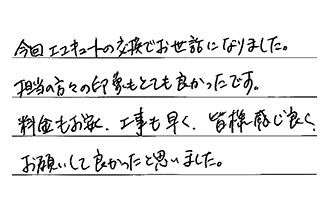 今回エコキュートの交換でお世話になりました。
担当の方々の印象もとても良かったです。
料金もお安く、工事も早く、皆様感じ良く、
お願いして良かったと思いました。